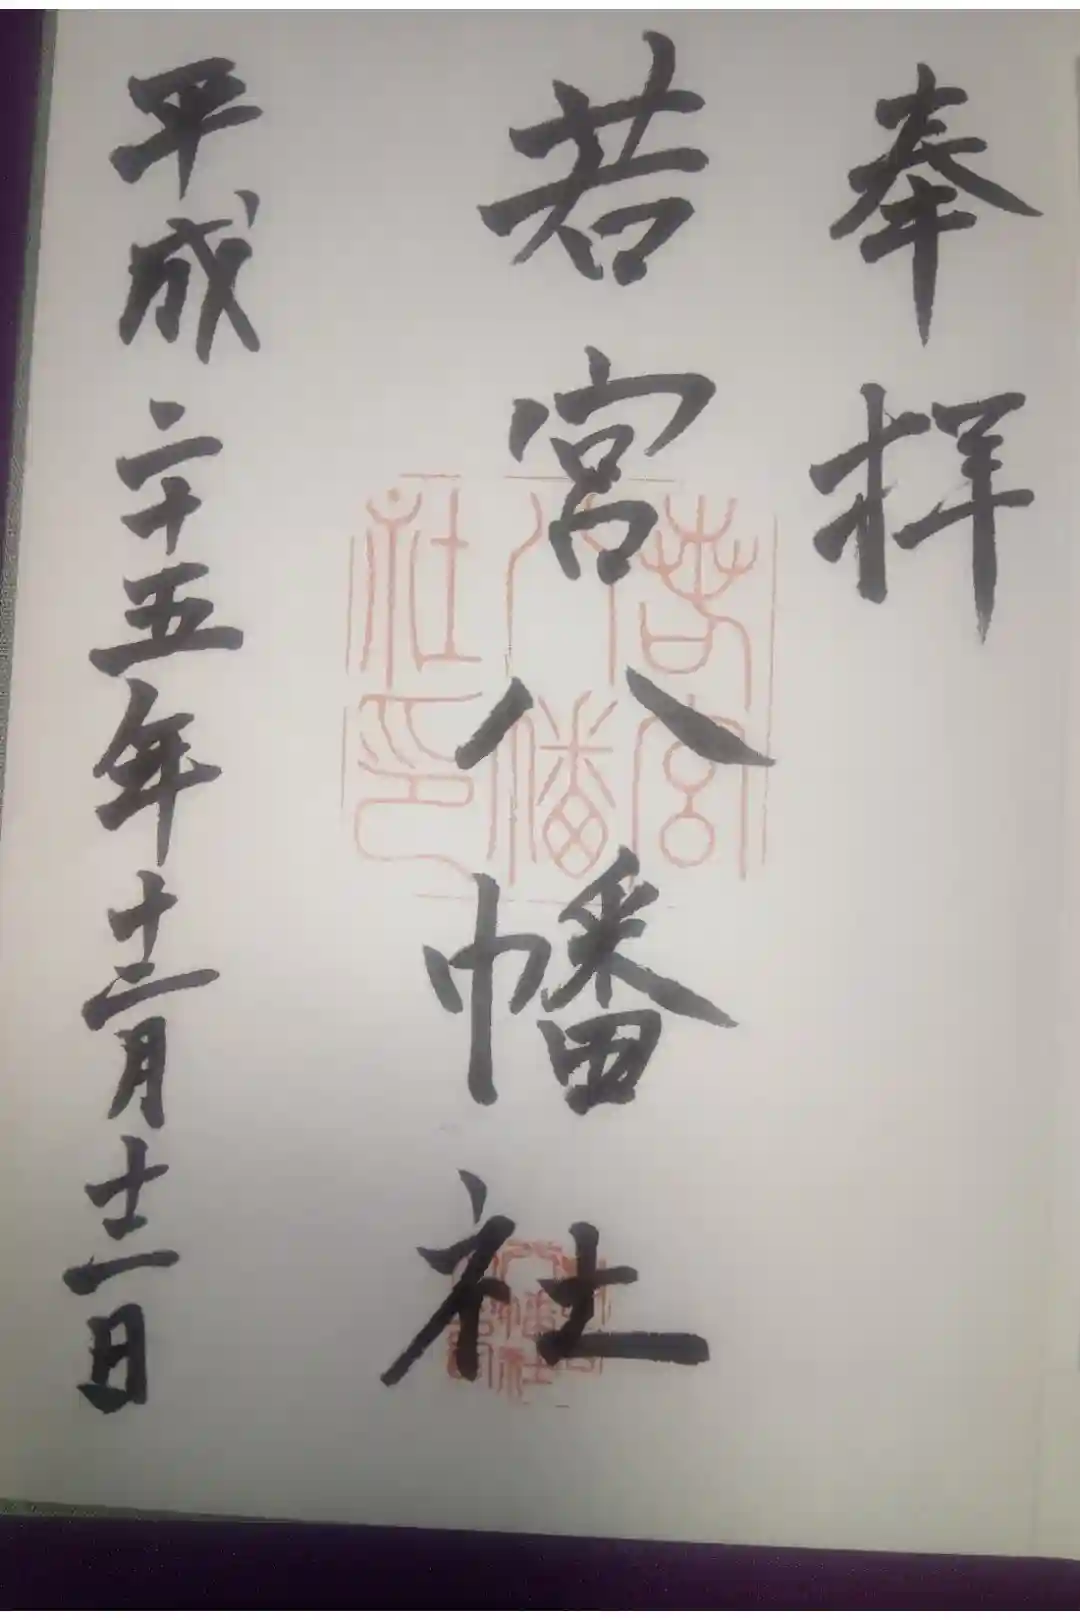 奉拝
若宮八幡社
平成二十五年十二月十二日
若宮
八幡
社印